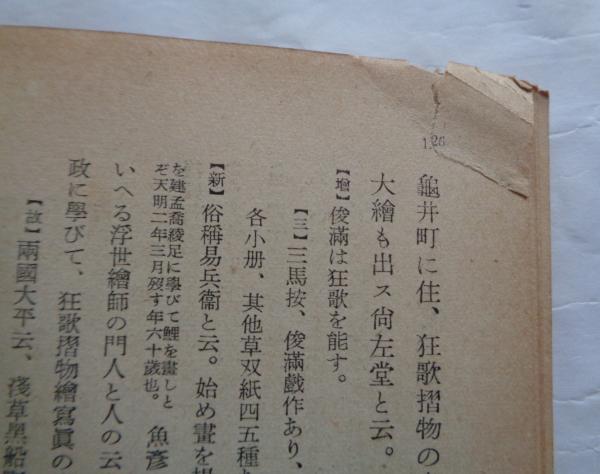 126
龜井町に住、狂歌摺物の
大繪も出ス尙左堂と云。
【增】俊滿は狂歌を能す。
【三】三馬按、俊滿戲作あり、
各小册、其他草双紙四五種
【新】俗稱易兵衞と云。始め畫を
を建孟喬綾足に學びて鯉を畫しと
ぞ天明二年三月歿す年六十歲也。 魚彥
いへる浮世繪師の門人と人の云
政に學びて、狂歌摺物繪寫眞の
【故】兩國大平云、淺草黑船